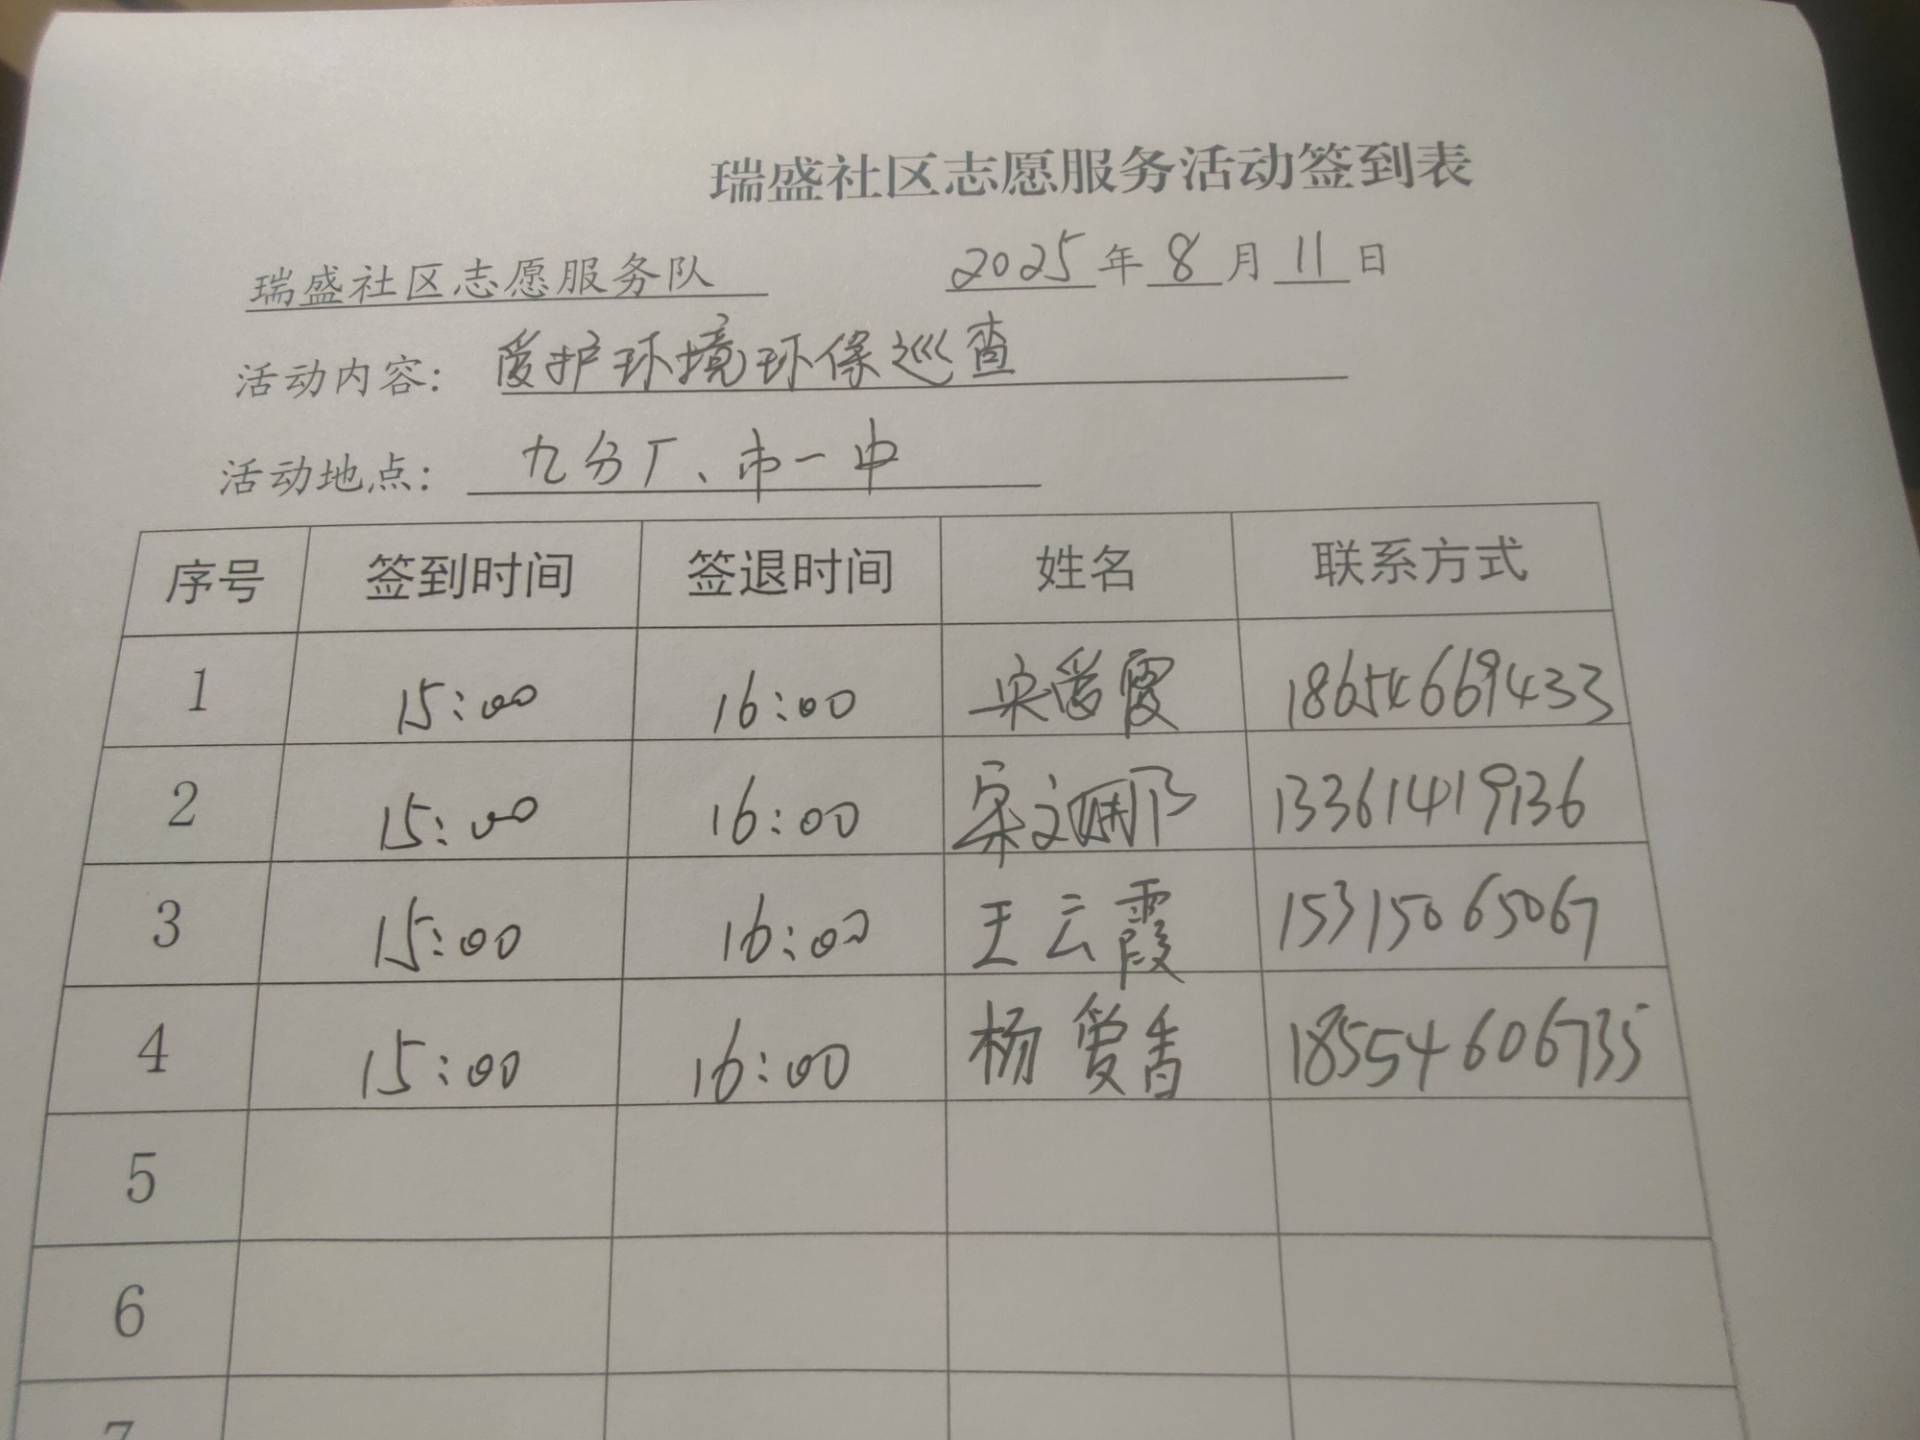 瑞盛社区志愿服务活动签到表
瑞盛社区志愿服务队 2025年8月11日
活动内容：爱护环境环保巡查
活动地点：九分厂、市一中
序号 签到时间 签退时间 姓名 联系方式
1 15:00 16:00 宋爱霞 18654669433
2 15:00 16:00 宋文娜 13361419136
3 15:00 16:00 王云霞 15315065067
4 15:00 16:00 杨爱香 18554606735
5
6
7